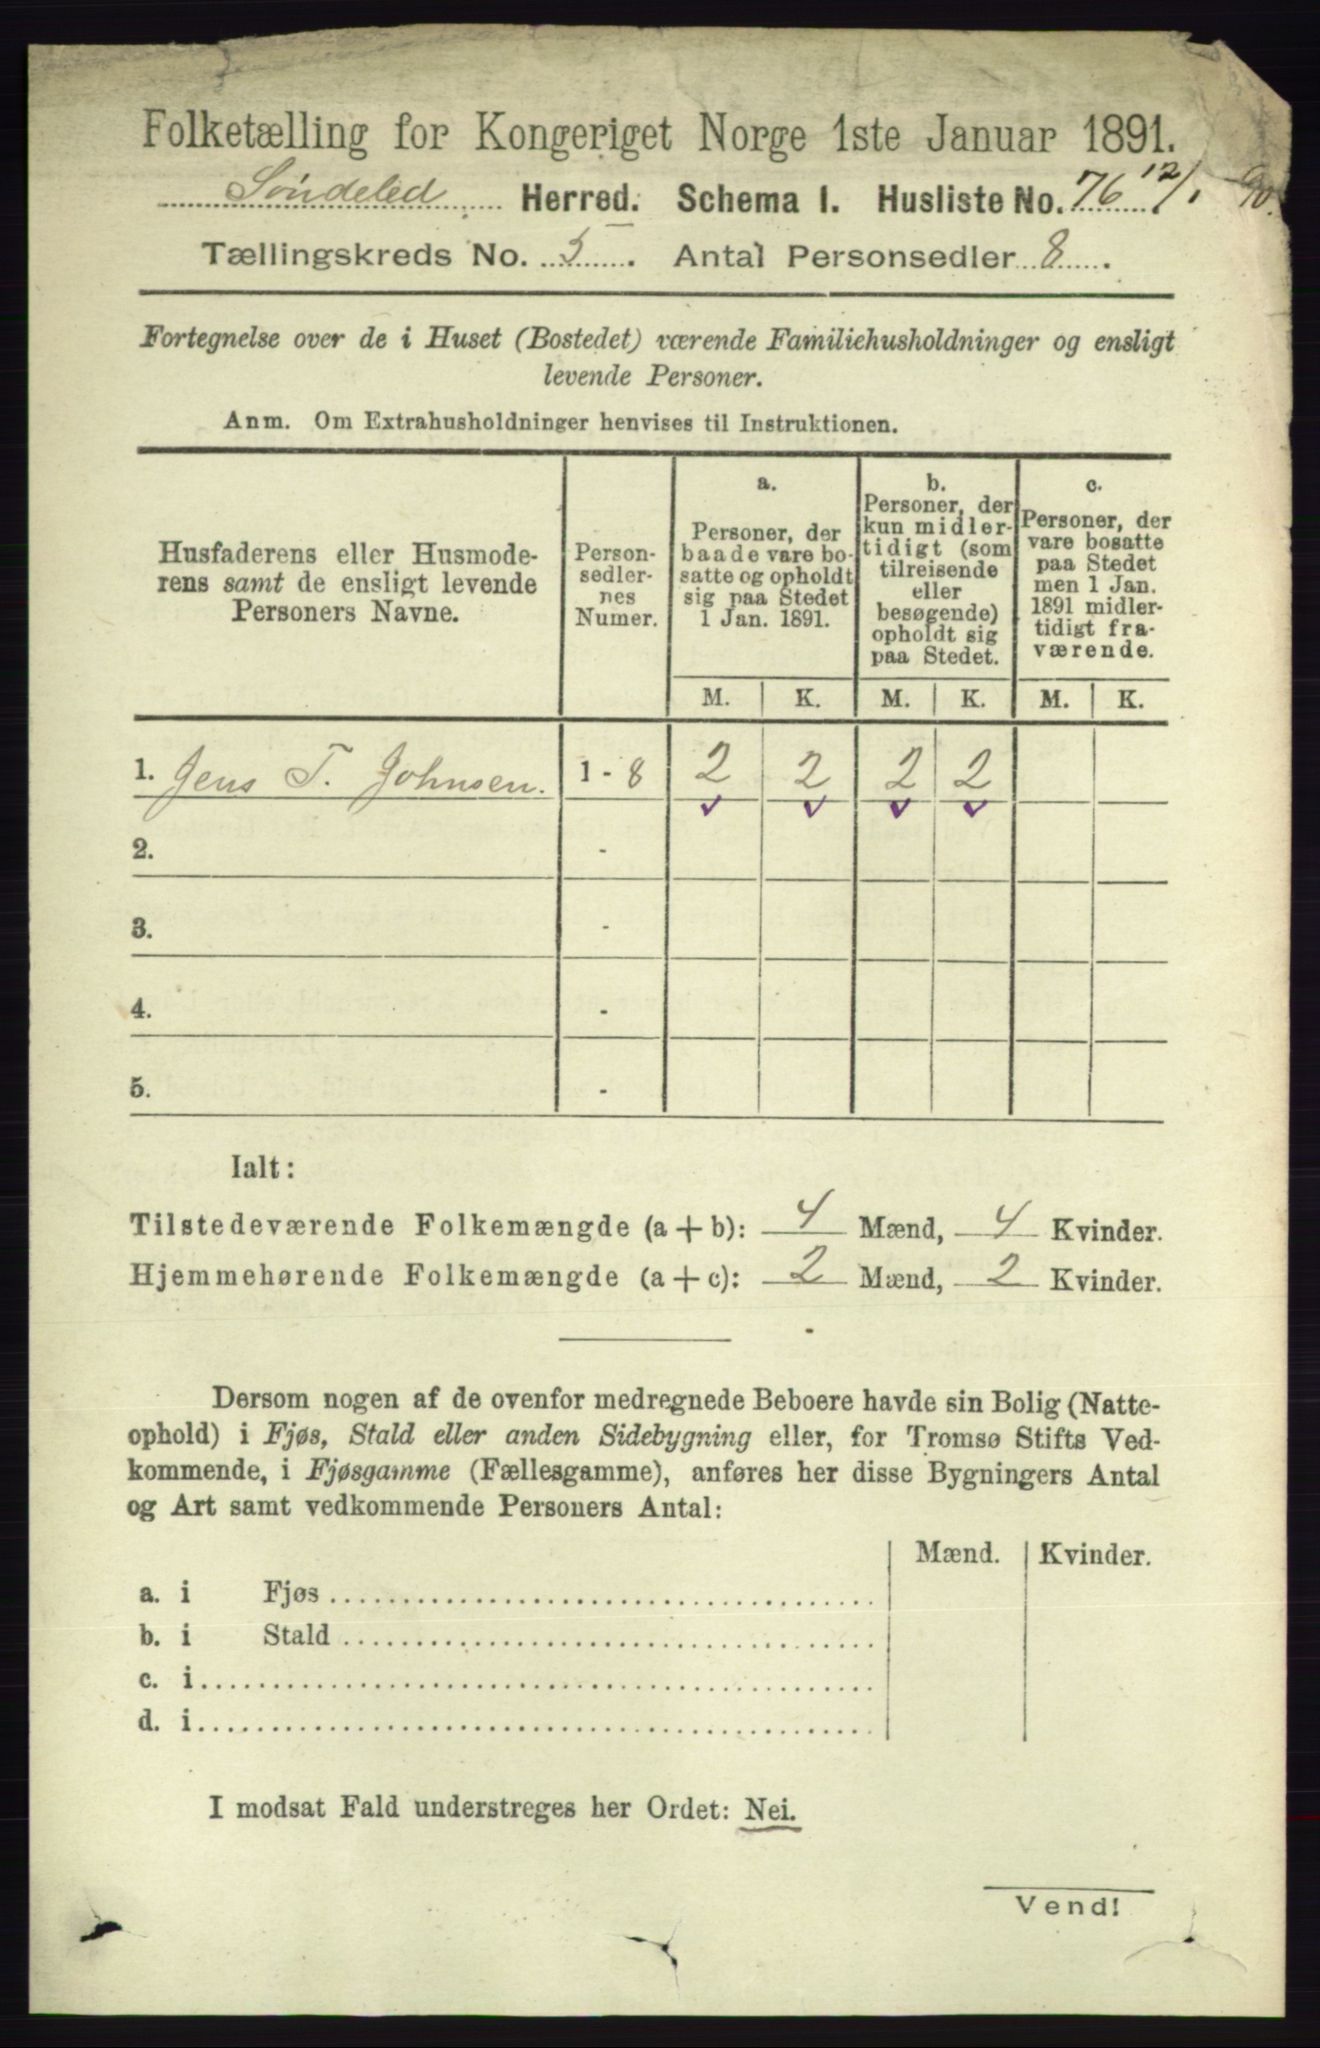 Folketælling for Kongeriget Norge 1ste Januar 1891.
Söndeled Herred. Schema 1. Husliste No. 76 12/1 90.
Tællingskreds No. 5. Antal Personsedler 8.
Fortegnelse over de i Huset (Bostedet) værende Familiehusholdninger og ensligt
levende Personer.
Anm. Om Extrahusholdninger henvises til Instruktionen.
Husfaderens eller Husmode-
rens samt de ensligt levende
Personers Navne.
Person-
sedler-
nes
Numer.
a.
Personer, der
baade vare bo-
satte og opholdt
sig paa Stedet
1 Jan. 1891.
b.
Personer, der
kun midler-
tidigt (som
tilreisende
eller
besøgende)
opholdt sig
paa Stedet.
c.
Personer, der
vare bosatte
paa Stedet
men 1 Jan.
1891 midler-
tidigt fra-
værende.
M. K. M. K. M. K.
1. Jens T. Johnsen. 1 - 8 2 2 2 2
2. -
3. -
4. -
5. -
Ialt:
Tilstedeværende Folkemængde (a + b): 4 Mænd, 4 Kvinder.
Hjemmehørende Folkemængde (a + c): 2 Mænd, 2 Kvinder.
Dersom nogen af de ovenfor medregnede Beboere havde sin Bolig (Natte-
ophold) i Fjøs, Stald eller anden Sidebygning eller, for Tromsø Stifts Ved-
kommende, i Fjøsgamme (Fællesgamme), anføres her disse Bygningers Antal
og Art samt vedkommende Personers Antal:
Mænd. Kvinder.
a. i Fjøs
b. i Stald
c. i
d. i
I modsat Fald understreges her Ordet: Nei.
Vend!